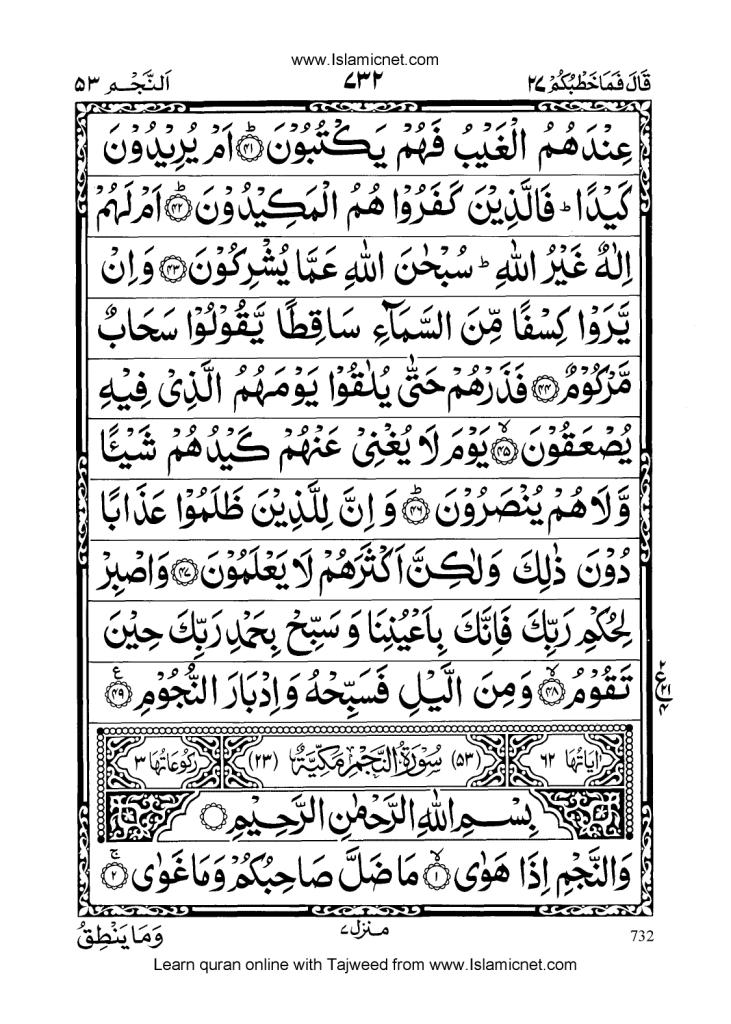 www.Islamicnet.com
قَالَ فَمَا خَطْبُكُمْ ۲۷ ۷۳۲ اَلنَّجْم ۵۳
عِنْدَهُمُ الْغَيْبُ فَهُمْ يَكْتُبُوْنَ ؕ﴿۴۱﴾ اَمْ يُرِيْدُوْنَ
كَيْدًا ؕ فَالَّذِيْنَ كَفَرُوْا هُمُ الْمَكِيْدُوْنَ ؕ﴿۴۲﴾ اَمْ لَهُمْ
اِلٰهٌ غَيْرُ اللّٰهِ ؕ سُبْحٰنَ اللّٰهِ عَمَّا يُشْرِكُوْنَ ﴿۴۳﴾ وَ اِنْ
يَّرَوْا كِسْفًا مِّنَ السَّمَآءِ سَاقِطًا يَّقُوْلُوْا سَحَابٌ
مَّرْكُوْمٌ ﴿۴۴﴾ فَذَرْهُمْ حَتّٰى يُلٰقُوْا يَوْمَهُمُ الَّذِىْ فِيْهِ
يُصْعَقُوْنَ ۙ﴿۴۵﴾ يَوْمَ لَا يُغْنِىْ عَنْهُمْ كَيْدُهُمْ شَيْـًٔا
وَّ لَا هُمْ يُنْصَرُوْنَ ؕ﴿۴۶﴾ وَ اِنَّ لِلَّذِيْنَ ظَلَمُوْا عَذَابًا
دُوْنَ ذٰلِكَ وَلٰكِنَّ اَكْثَرَهُمْ لَا يَعْلَمُوْنَ ﴿۴۷﴾ وَاصْبِرْ
لِحُكْمِ رَبِّكَ فَاِنَّكَ بِاَعْيُنِنَا وَ سَبِّحْ بِحَمْدِ رَبِّكَ حِيْنَ
تَقُوْمُ ۙ﴿۴۸﴾ وَ مِنَ الَّيْلِ فَسَبِّحْهُ وَ اِدْبَارَ النُّجُوْمِ ﴿۴۹﴾ ع
۲ ع ۲۱ ۴
اٰيَاتُهَا ۶۲ (۵۳) سُوْرَةُ النَّجْمِ مَكِّيَّةٌ (۲۳) رُكُوْعَاتُهَا ۳
بِسْمِ اللّٰهِ الرَّحْمٰنِ الرَّحِيْمِ
وَالنَّجْمِ اِذَا هَوٰى ۙ﴿۱﴾ مَا ضَلَّ صَاحِبُكُمْ وَمَا غَوٰى ۚ﴿۲﴾
732 منزل ۷ وَمَا يَنْطِقُ
Learn quran online with Tajweed from www.Islamicnet.com